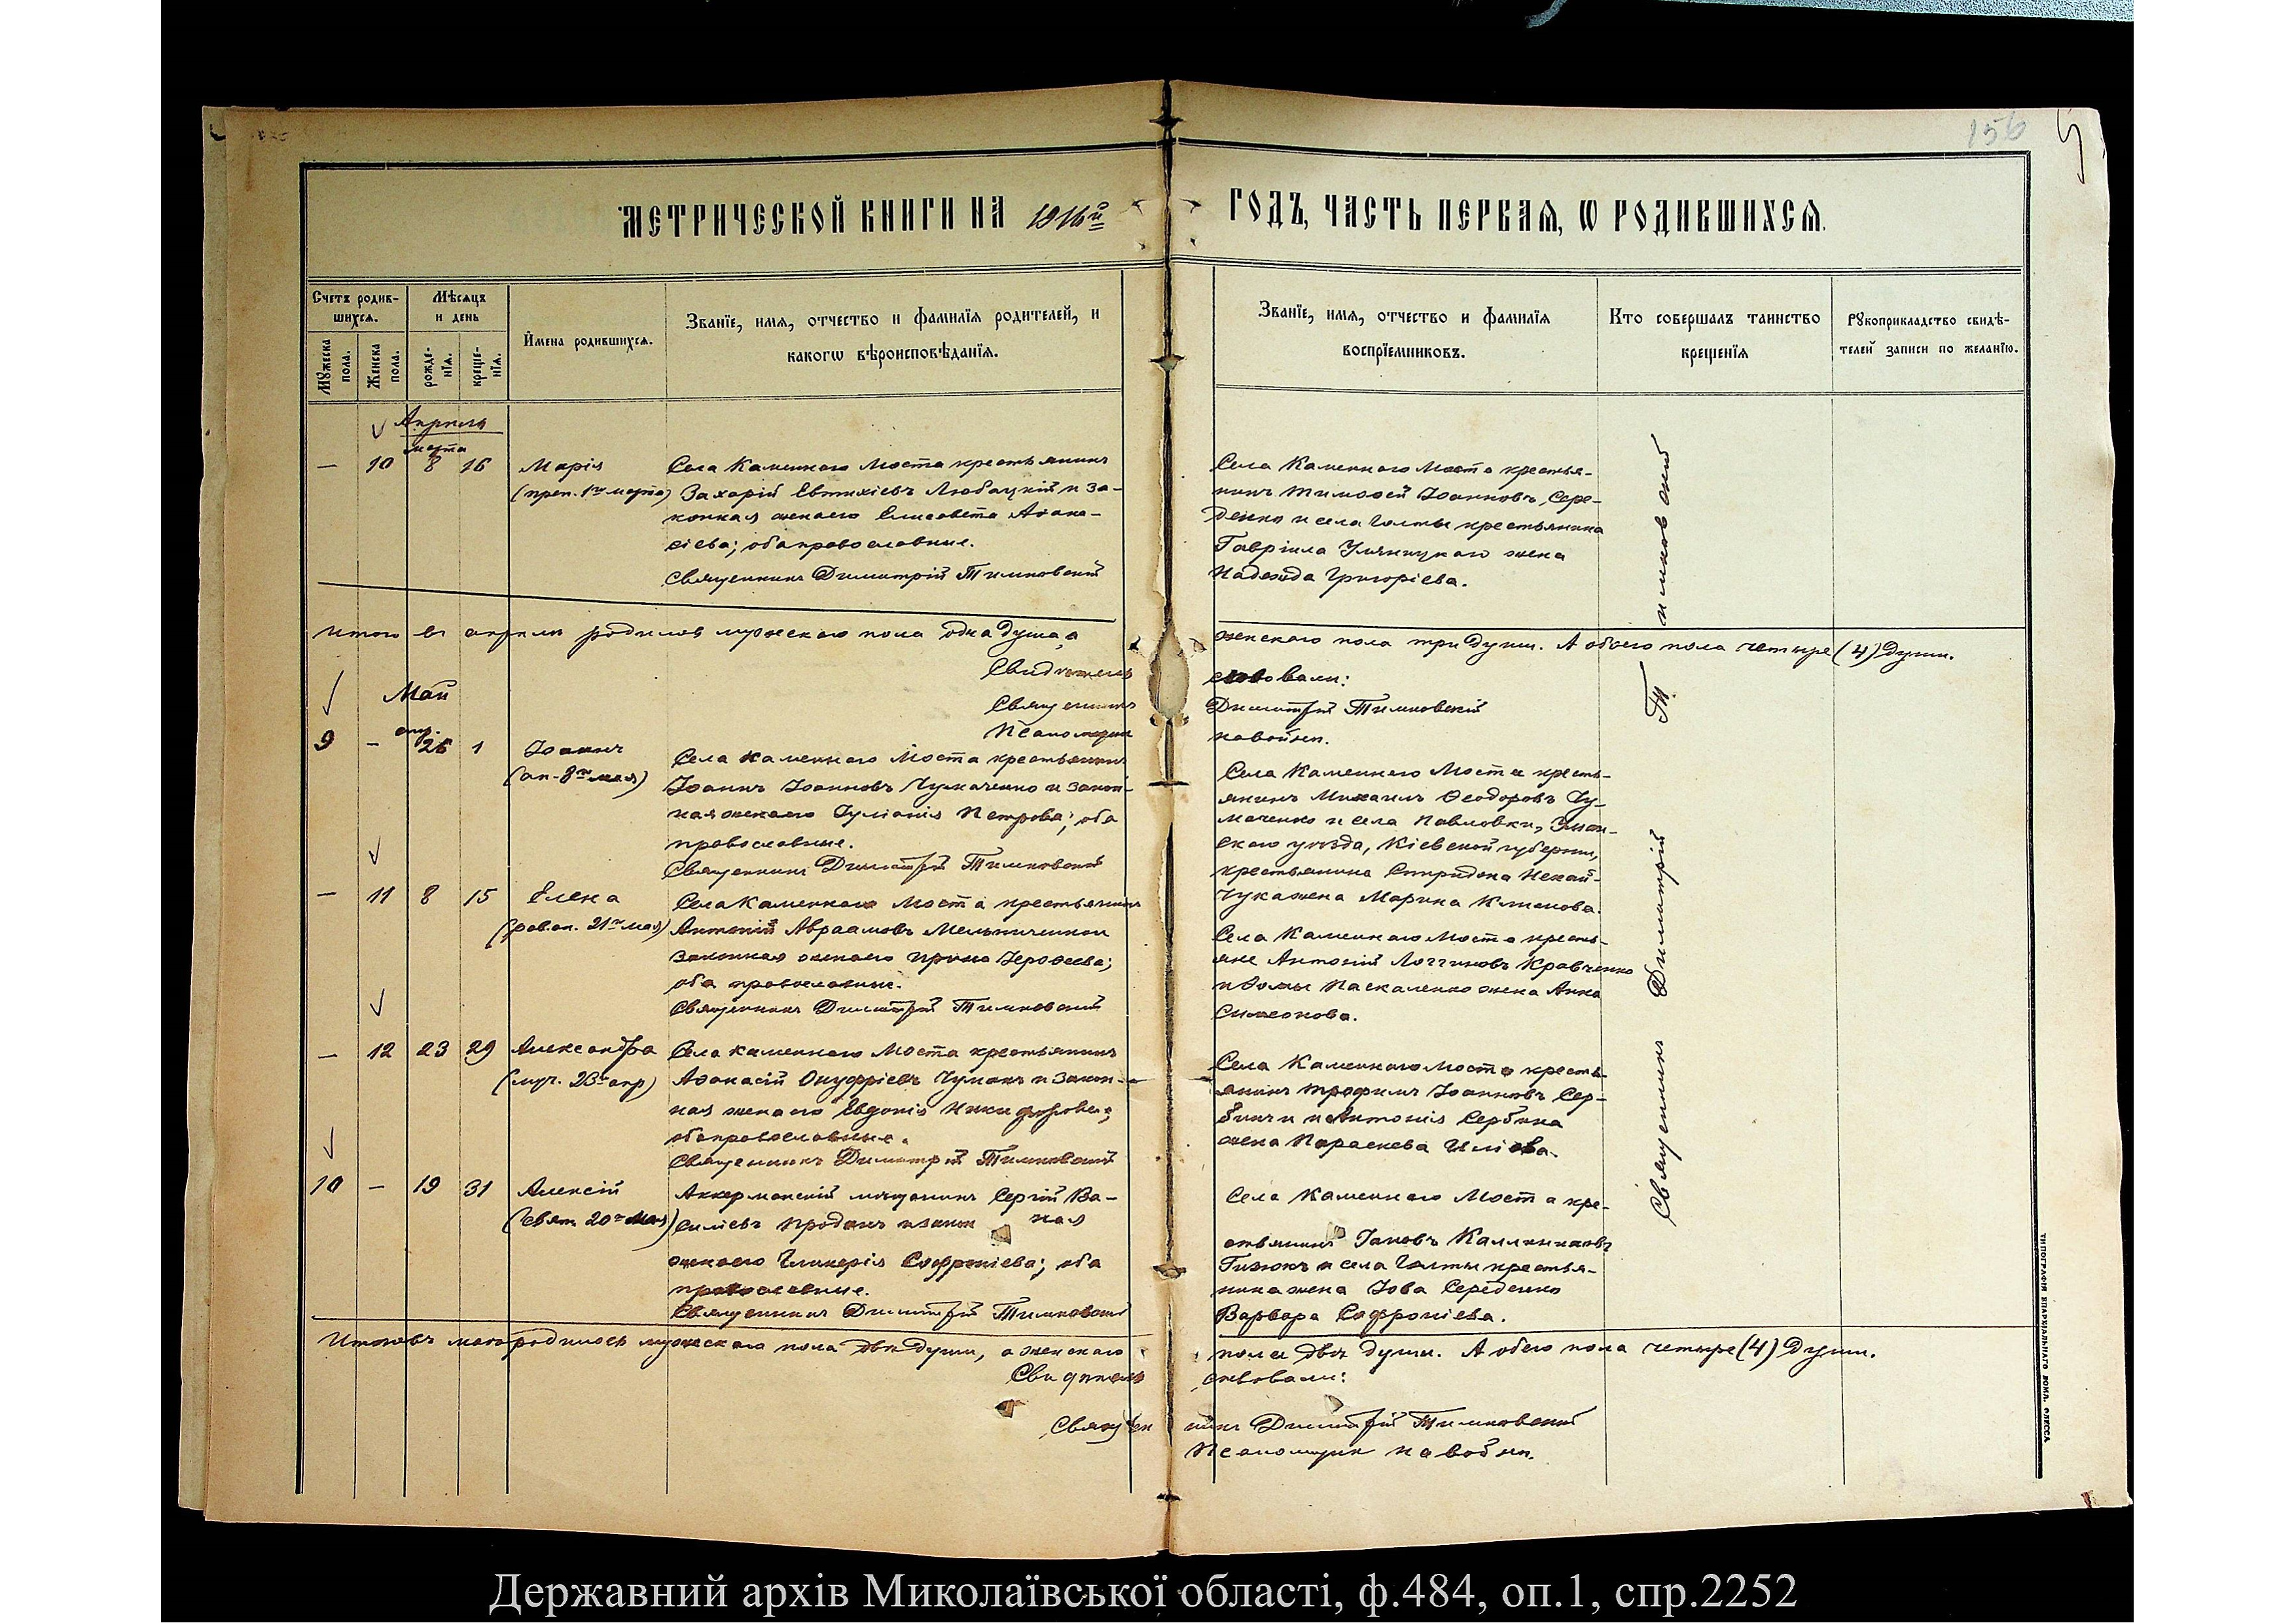 156
МЕТРИЧЕСКОЙ КНИГИ НА 1916й ГОДЪ, ЧАСТЬ ПЕРВАѦ, Ѡ РОДИВШИХСѦ.
Счетъ родив-
шихсѧ.
Мѣсѧцъ
и день
Мꙋжеска
пола.
Женска
пола.
рожде-
нїѧ.
креще-
нїѧ.
Имена родившихсѧ.
Званїе, имѧ, отчество и фамилїѧ родителей, и
какогѡ вѣроисповѣданїѧ.
Званїе, имѧ, отчество и фамилїѧ
воспрїемниковъ.
Кто совершалъ таинство
крещенїѧ
Рꙋкоприкладство свидѣ-
телей записи по желанїю.
Апрель
марта
— 10 8 16
Марія
(преп. 1го марта)
Села Каменнаго Моста крестьянинъ
Захарій Евтихіевъ Любацкій и за-
конная жена его Елисавета Афана-
сіева; оба православные.
Священникъ Димитрій Тимковскій
Села Каменнаго Моста крестья-
нинъ Тимофей Іоанновъ Сере-
денко и села Голты крестьянина
Гавріила жена
Надежда Григоріева.
Итого въ апреле родилось мужеского пола одна душа, а женскаго пола три души. А обоего пола четыре (4) души.
Свидетельствовали:
Священникъ Димитрій Тимковскій
Псаломщик Навойзен.
Май
апр.
9 — 26 1
Іоаннъ
(ап. 8го мая)
Села Каменнаго Моста крестьянинъ
Іоаннъ Іоанновъ Чумаченко и закон-
ная жена его Іуліанія Петрова; оба
православные.
Священникъ Димитрій Тимковскій
Села Каменнаго Моста кресть-
янинъ Михаилъ Феодоровъ Чу-
маченко и села Павловки, Уман-
скаго уезда, Кіевской губерніи,
крестьянина Спиридона Некай-
чука жена Марина Климова.
— 11 8 15
Елена
(равоап. 21го мая)
Села Каменнаго Моста крестьянинъ
Антоній Авраамовъ Мельниченко и
законная жена его Ирина Іерофеева;
оба православные.
Священникъ Димитрій Тимковскій
Села Каменнаго Моста кресть-
яне Антоній Логгиновъ Кравченко
и Фомы Паскаленко жена Анна
Симеонова.
— 12 23 29
Александра
(муч. 23го апр)
Села Каменнаго Моста крестьянинъ
Афанасій Онуфріевъ Чуманъ и закон-
ная жена его Евдокія Никифорова;
оба православные.
Священникъ Димитрій Тимковскій
Села Каменнаго Моста кресть-
янинъ Трофимъ Іоанновъ Сер-
бинъ и Антонія Сербина
жена Параскева Иліева.
10 — 19 31
Алексій
(свят. 20го мая)
Аккерманскій мещанинъ Сергій Ва-
силіевъ Проданъ и законная
жена его Гликерія Софроніева; оба
православные.
Священникъ Димитрій Тимковскій
Села Каменнаго Моста кре-
стьянинъ Іаковъ Каллиниковъ
Гизюкъ и села Голты крестья-
нина жена Іова Середенко
Варвара Софроніева.
Священникъ Димитрій Тимковскій
Итого въ мае родилось мужескаго пола две души, а женскаго пола две души. А обоего пола четыре (4) души.
Свидетельствовали:
Священникъ Димитрій Тимковскій
Псаломщик Навойзен.
ТИПОГРАФІЯ ЕПАРХІАЛЬНАГО ДОМА, ОДЕССА
Державний архів Миколаївської області, ф.484, оп.1, спр.2252